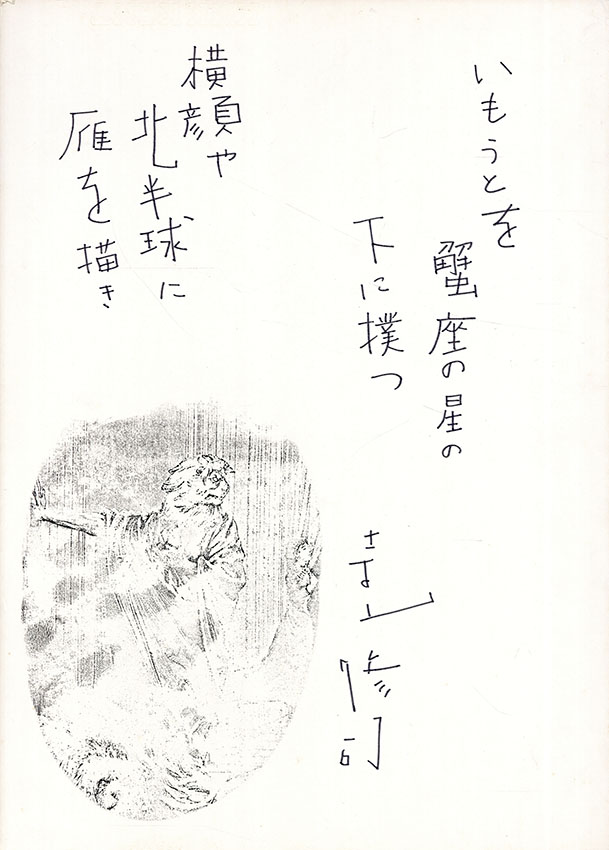 いもうとを
蟹座の星の
下に撲つ
横顔や
北半球に
雁を描き
寺山修司